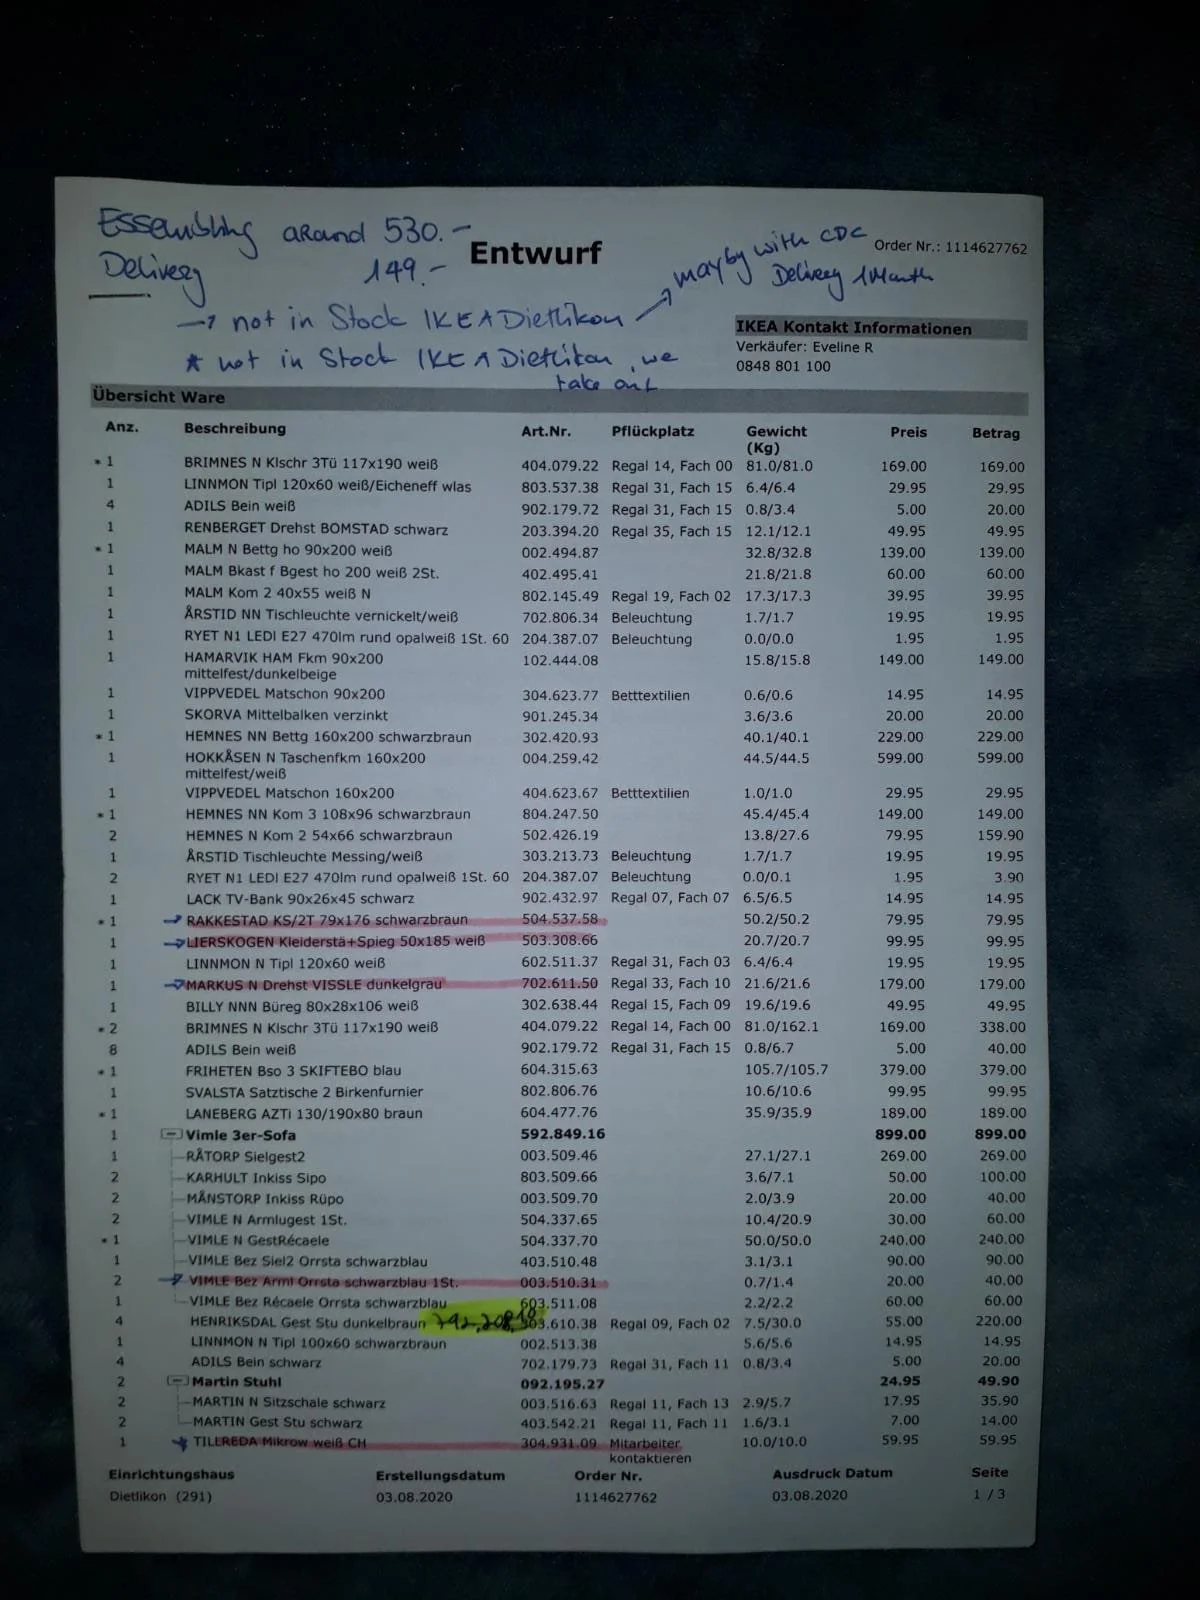 Essembling around 530.-
Entwurf
Delivery 149.-
mayby with CDC
Delivery 1 Month
Order Nr.: 1114627762
→ not in Stock IKEA Dietlikon →
* not in Stock IKEA Dietlikon, we
take out
IKEA Kontakt Informationen
Verkäufer: Eveline R
0848 801 100
Übersicht Ware
Anz. Beschreibung Art.Nr. Pflückplatz Gewicht Preis Betrag
(Kg)
* 1 BRIMNES N Klschr 3Tü 117x190 weiß 404.079.22 Regal 14, Fach 00 81.0/81.0 169.00 169.00
1 LINNMON Tipl 120x60 weiß/Eicheneff wlas 803.537.38 Regal 31, Fach 15 6.4/6.4 29.95 29.95
4 ADILS Bein weiß 902.179.72 Regal 31, Fach 15 0.8/3.4 5.00 20.00
1 RENBERGET Drehst BOMSTAD schwarz 203.394.20 Regal 35, Fach 15 12.1/12.1 49.95 49.95
* 1 MALM N Bettg ho 90x200 weiß 002.494.87 32.8/32.8 139.00 139.00
1 MALM Bkast f Bgest ho 200 weiß 2St. 402.495.41 21.8/21.8 60.00 60.00
1 MALM Kom 2 40x55 weiß N 802.145.49 Regal 19, Fach 02 17.3/17.3 39.95 39.95
1 ÅRSTID NN Tischleuchte vernickelt/weiß 702.806.34 Beleuchtung 1.7/1.7 19.95 19.95
1 RYET N1 LEDI E27 470lm rund opalweiß 1St. 60 204.387.07 Beleuchtung 0.0/0.0 1.95 1.95
1 HAMARVIK HAM Fkm 90x200 102.444.08 15.8/15.8 149.00 149.00
mittelfest/dunkelbeige
1 VIPPVEDEL Matschon 90x200 304.623.77 Betttextilien 0.6/0.6 14.95 14.95
1 SKORVA Mittelbalken verzinkt 901.245.34 3.6/3.6 20.00 20.00
* 1 HEMNES NN Bettg 160x200 schwarzbraun 302.420.93 40.1/40.1 229.00 229.00
1 HOKKÅSEN N Taschenfkm 160x200 004.259.42 44.5/44.5 599.00 599.00
mittelfest/weiß
1 VIPPVEDEL Matschon 160x200 404.623.67 Betttextilien 1.0/1.0 29.95 29.95
* 1 HEMNES NN Kom 3 108x96 schwarzbraun 804.247.50 45.4/45.4 149.00 149.00
2 HEMNES N Kom 2 54x66 schwarzbraun 502.426.19 13.8/27.6 79.95 159.90
1 ÅRSTID Tischleuchte Messing/weiß 303.213.73 Beleuchtung 1.7/1.7 19.95 19.95
2 RYET N1 LEDI E27 470lm rund opalweiß 1St. 60 204.387.07 Beleuchtung 0.0/0.1 1.95 3.90
1 LACK TV-Bank 90x26x45 schwarz 902.432.97 Regal 07, Fach 07 6.5/6.5 14.95 14.95
* 1 → RAKKESTAD KS/2T 79x176 schwarzbraun 504.537.58 50.2/50.2 79.95 79.95
1 → LIERSKOGEN Kleiderstä+Spieg 50x185 weiß 503.308.66 20.7/20.7 99.95 99.95
1 LINNMON N Tipl 120x60 weiß 602.511.37 Regal 31, Fach 03 6.4/6.4 19.95 19.95
1 → MARKUS N Drehst VISSLE dunkelgrau 702.611.50 Regal 33, Fach 10 21.6/21.6 179.00 179.00
1 BILLY NNN Büreg 80x28x106 weiß 302.638.44 Regal 15, Fach 09 19.6/19.6 49.95 49.95
* 2 BRIMNES N Klschr 3Tü 117x190 weiß 404.079.22 Regal 14, Fach 00 81.0/162.1 169.00 338.00
8 ADILS Bein weiß 902.179.72 Regal 31, Fach 15 0.8/6.7 5.00 40.00
* 1 FRIHETEN Bso 3 SKIFTEBO blau 604.315.63 105.7/105.7 379.00 379.00
1 SVALSTA Satztische 2 Birkenfurnier 802.806.76 10.6/10.6 99.95 99.95
* 1 LANEBERG AZTi 130/190x80 braun 604.477.76 35.9/35.9 189.00 189.00
1 Vimle 3er-Sofa 592.849.16 899.00 899.00
1 RÅTORP Sielgest2 003.509.46 27.1/27.1 269.00 269.00
2 KARHULT Inkiss Sipo 803.509.66 3.6/7.1 50.00 100.00
2 MÅNSTORP Inkiss Rüpo 003.509.70 2.0/3.9 20.00 40.00
2 VIMLE N Armlugest 1St. 504.337.65 10.4/20.9 30.00 60.00
* 1 VIMLE N GestRécaele 504.337.70 50.0/50.0 240.00 240.00
1 VIMLE Bez Siel2 Orrsta schwarzblau 403.510.48 3.1/3.1 90.00 90.00
2 → VIMLE Bez Arml Orrsta schwarzblau 1St. 003.510.31 0.7/1.4 20.00 40.00
1 VIMLE Bez Récaele Orrsta schwarzblau 603.511.08 2.2/2.2 60.00 60.00
4 HENRIKSDAL Gest Stu dunkelbraun 792,208,10 503.610.38 Regal 09, Fach 02 7.5/30.0 55.00 220.00
1 LINNMON N Tipl 100x60 schwarzbraun 002.513.38 5.6/5.6 14.95 14.95
4 ADILS Bein schwarz 702.179.73 Regal 31, Fach 11 0.8/3.4 5.00 20.00
2 Martin Stuhl 092.195.27 24.95 49.90
2 MARTIN N Sitzschale schwarz 003.516.63 Regal 11, Fach 13 2.9/5.7 17.95 35.90
2 MARTIN Gest Stu schwarz 403.542.21 Regal 11, Fach 11 1.6/3.1 7.00 14.00
1 → TILLREDA Mikrow weiß CH 304.931.09 Mitarbeiter 10.0/10.0 59.95 59.95
kontaktieren
Einrichtungshaus Erstellungsdatum Order Nr. Ausdruck Datum Seite
Dietlikon (291) 03.08.2020 1114627762 03.08.2020 1 / 3